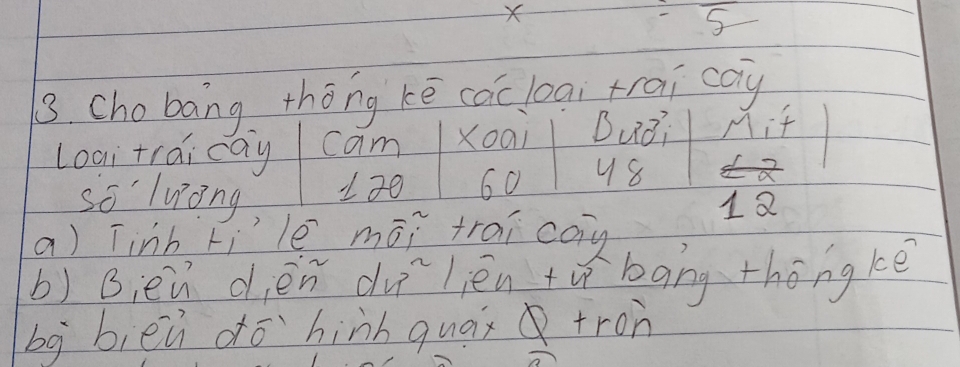 x - 5
3. Cho bảng thống kê các loại trái cây
Loại trái cây | Cam | Xoài | Bưởi | Mít |
số lượng | 120 | 60 | 48 | 12
12
a) Tính tỉ lệ mỗi trái cây
b) Biểu diễn dữ liệu từ bảng thống kê
bg biểu đồ hình quạt tròn